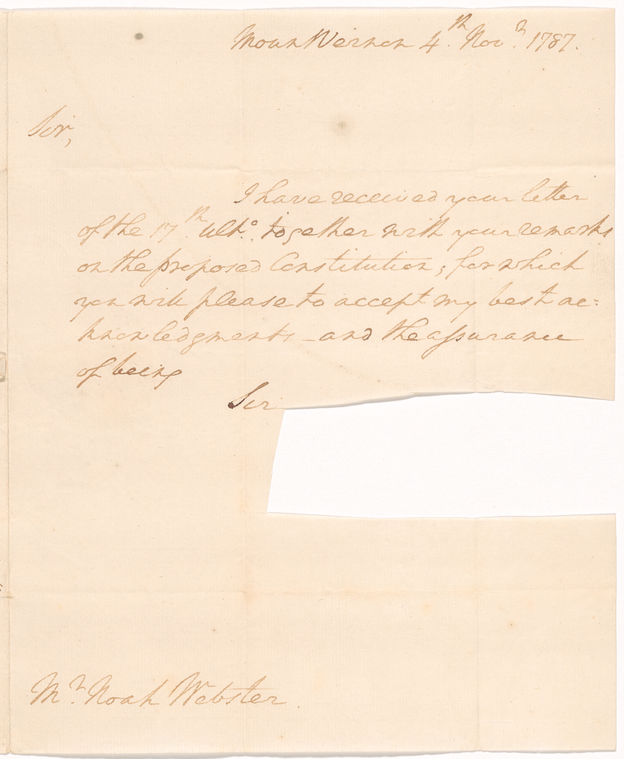 Mount Vernon 4th Novr 1787.
Sir,
I have received your letter
of the 17th ulto. together with your remarks
on the proposed Constitution; for which
you will please to accept my best ac=
knowledgments – and the assurance
of being
Sir
Mr Noah Webster.